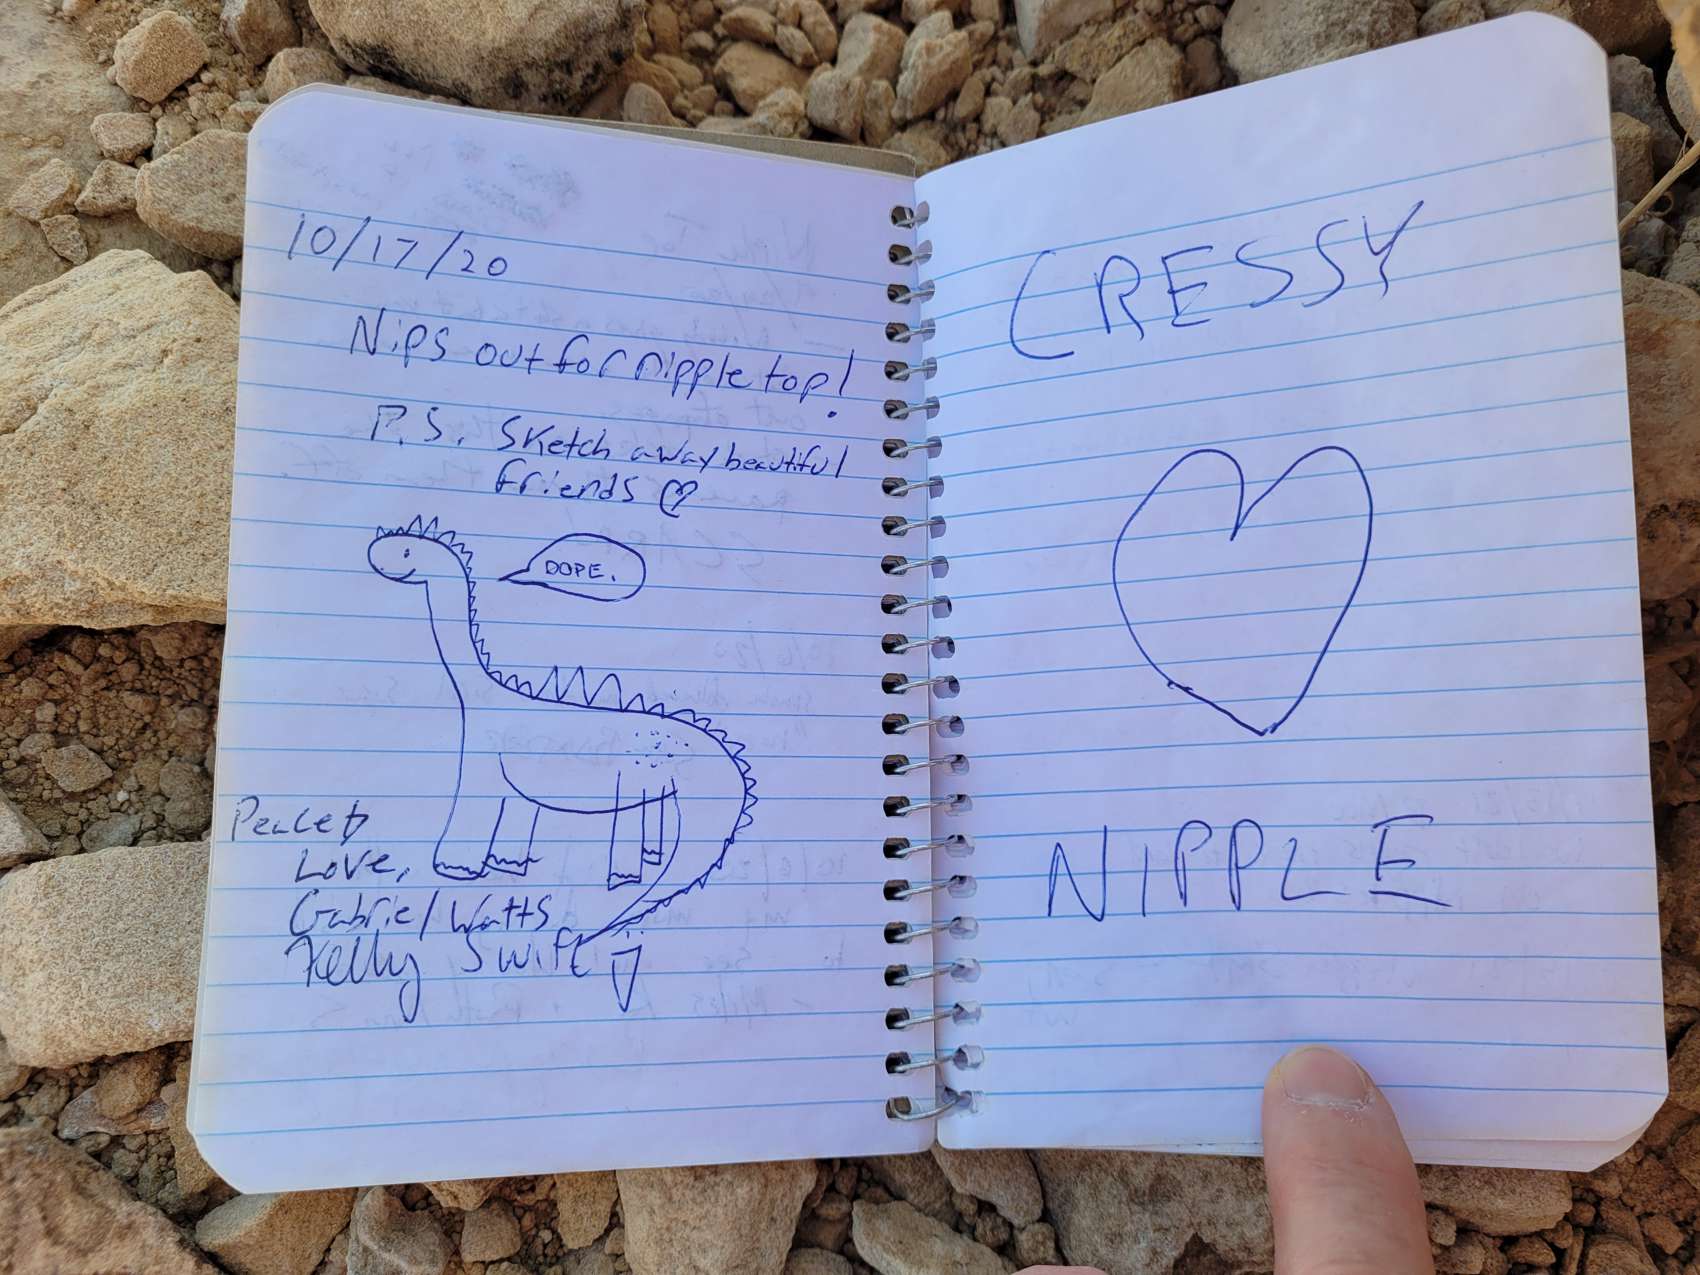 10/17/20
Nips out for nipple top!
P.S. Sketch away beautiful
friends
DOPE.
Peace &
Love,
Gabriel Watts
Kelly Swift
CRESSY
NIPPLE